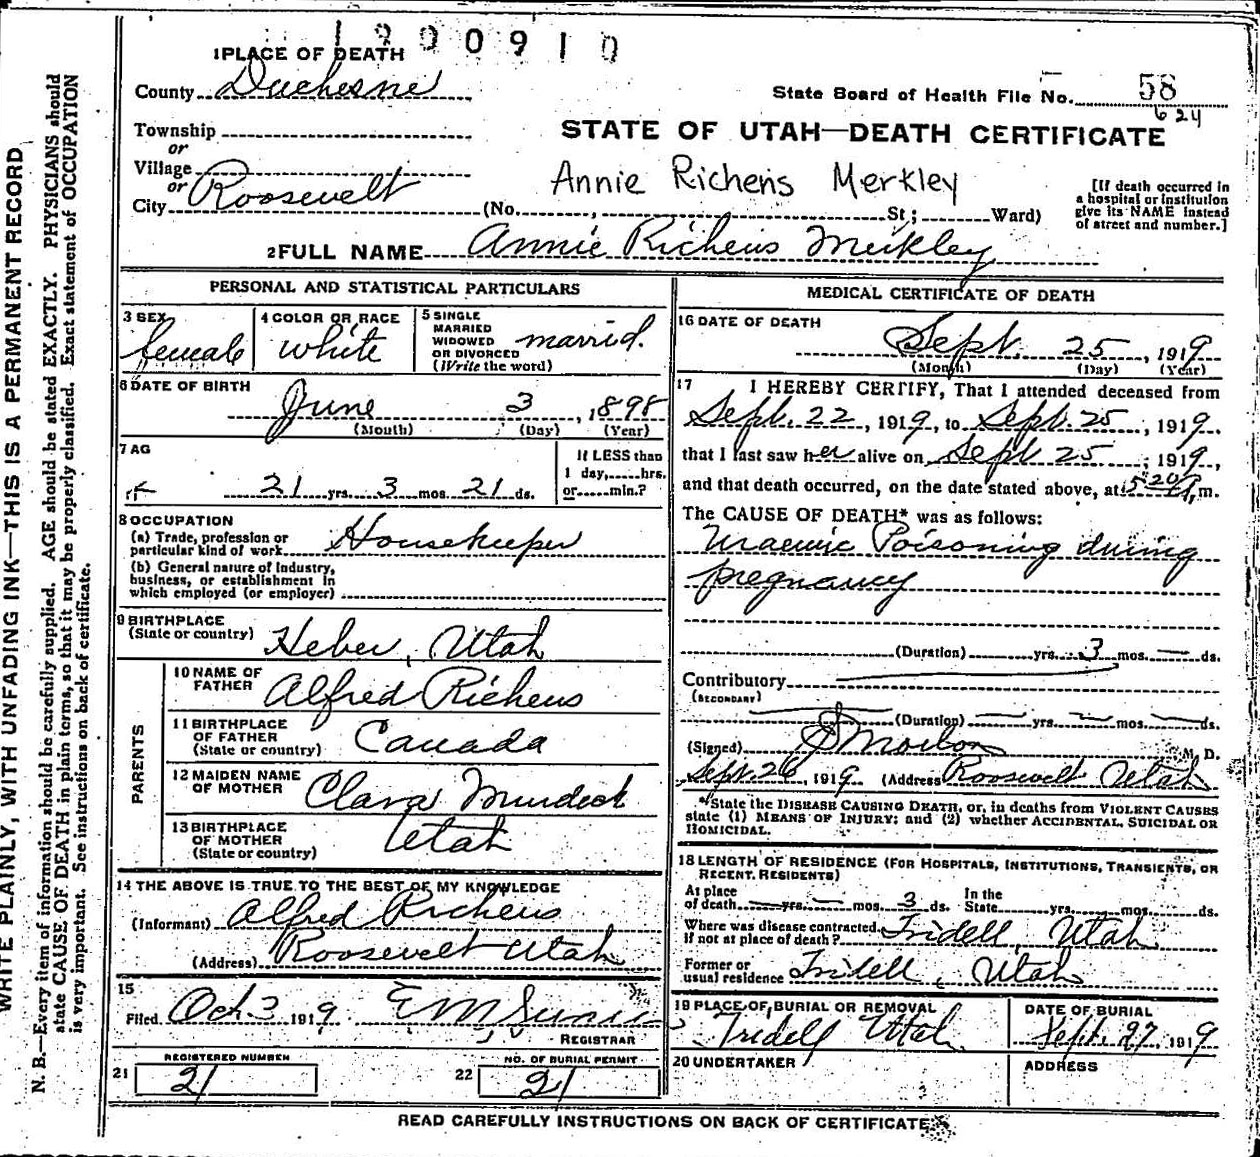 1900910
1 PLACE OF DEATH
County Duchesne
State Board of Health File No. 58
624
Township
or
Village
or
City Roosevelt
STATE OF UTAH—DEATH CERTIFICATE
Annie Richens Merkley
(No. , St.; Ward)
[If death occurred in
a hospital or institution
give its NAME instead
of street and number.]
2 FULL NAME Annie Richens Merkley
PERSONAL AND STATISTICAL PARTICULARS
3 SEX
female
4 COLOR OR RACE
white
5 SINGLE
MARRIED
WIDOWED
OR DIVORCED
(Write the word)
married.
6 DATE OF BIRTH
June 3, 1898
(Month) (Day) (Year)
7 AG
21 yrs. 3 mos. 21 ds.
If LESS than
1 day, hrs.
or min.?
8 OCCUPATION
(a) Trade, profession or
particular kind of work Housekeeper
(b) General nature of industry,
business, or establishment in
which employed (or employer)
9 BIRTHPLACE
(State or country) Heber, Utah
PARENTS
10 NAME OF
FATHER Alfred Richens
11 BIRTHPLACE
OF FATHER
(State or country) Canada
12 MAIDEN NAME
OF MOTHER Clara Murdock
13 BIRTHPLACE
OF MOTHER
(State or country) Utah
14 THE ABOVE IS TRUE TO THE BEST OF MY KNOWLEDGE
(Informant) Alfred Richens
(Address) Roosevelt Utah
15
Filed Oct 3 1919 E M
REGISTRAR
REGISTERED NUMBER
21 21
NO. OF BURIAL PERMIT
22 21
MEDICAL CERTIFICATE OF DEATH
16 DATE OF DEATH
Sept. 25, 1919
(Month) (Day) (Year)
17 I HEREBY CERTIFY, That I attended deceased from
Sept. 22, 1919, to Sept. 25, 1919.
that I last saw her alive on Sept 25, 1919,
and that death occurred, on the date stated above, at 5 20 A.m.
The CAUSE OF DEATH* was as follows:
Uraemic Poisoning during
pregnancy
(Duration) yrs. 3 mos. — ds.
Contributory
(SECONDARY)
(Duration) — yrs. — mos. — ds.
(Signed) M. D.
Sept. 26, 1919 (Address Roosevelt Utah
*State the DISEASE CAUSING DEATH, or, in deaths from VIOLENT CAUSES
state (1) MEANS OF INJURY; and (2) whether ACCIDENTAL, SUICIDAL OR
HOMICIDAL.
18 LENGTH OF RESIDENCE (FOR HOSPITALS, INSTITUTIONS, TRANSIENTS, OR
RECENT RESIDENTS)
At place
of death — yrs. — mos. 3 ds.
In the
State yrs. mos. ds.
Where was disease contracted,
if not at place of death? Tridell, Utah
Former or
usual residence Tridell, Utah
19 PLACE OF BURIAL OR REMOVAL
Tridell Utah
DATE OF BURIAL
Sept. 27, 1919
20 UNDERTAKER
ADDRESS
READ CAREFULLY INSTRUCTIONS ON BACK OF CERTIFICATE
WRITE PLAINLY, WITH UNFADING INK—THIS IS A PERMANENT RECORD
N. B.—Every item of information should be carefully supplied. AGE should be stated EXACTLY. PHYSICIANS should
state CAUSE OF DEATH in plain terms, so that it may be properly classified. Exact statement of OCCUPATION
is very important. See instructions on back of certificate.